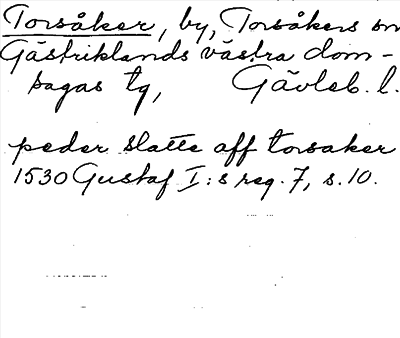 Torsåker, by, Torsåkers sn
Gästriklands västra dom-
sagas tg, Gävleb. l.
peder slatte aff torsaker
1530 Gustaf I:s reg. 7, s. 10.